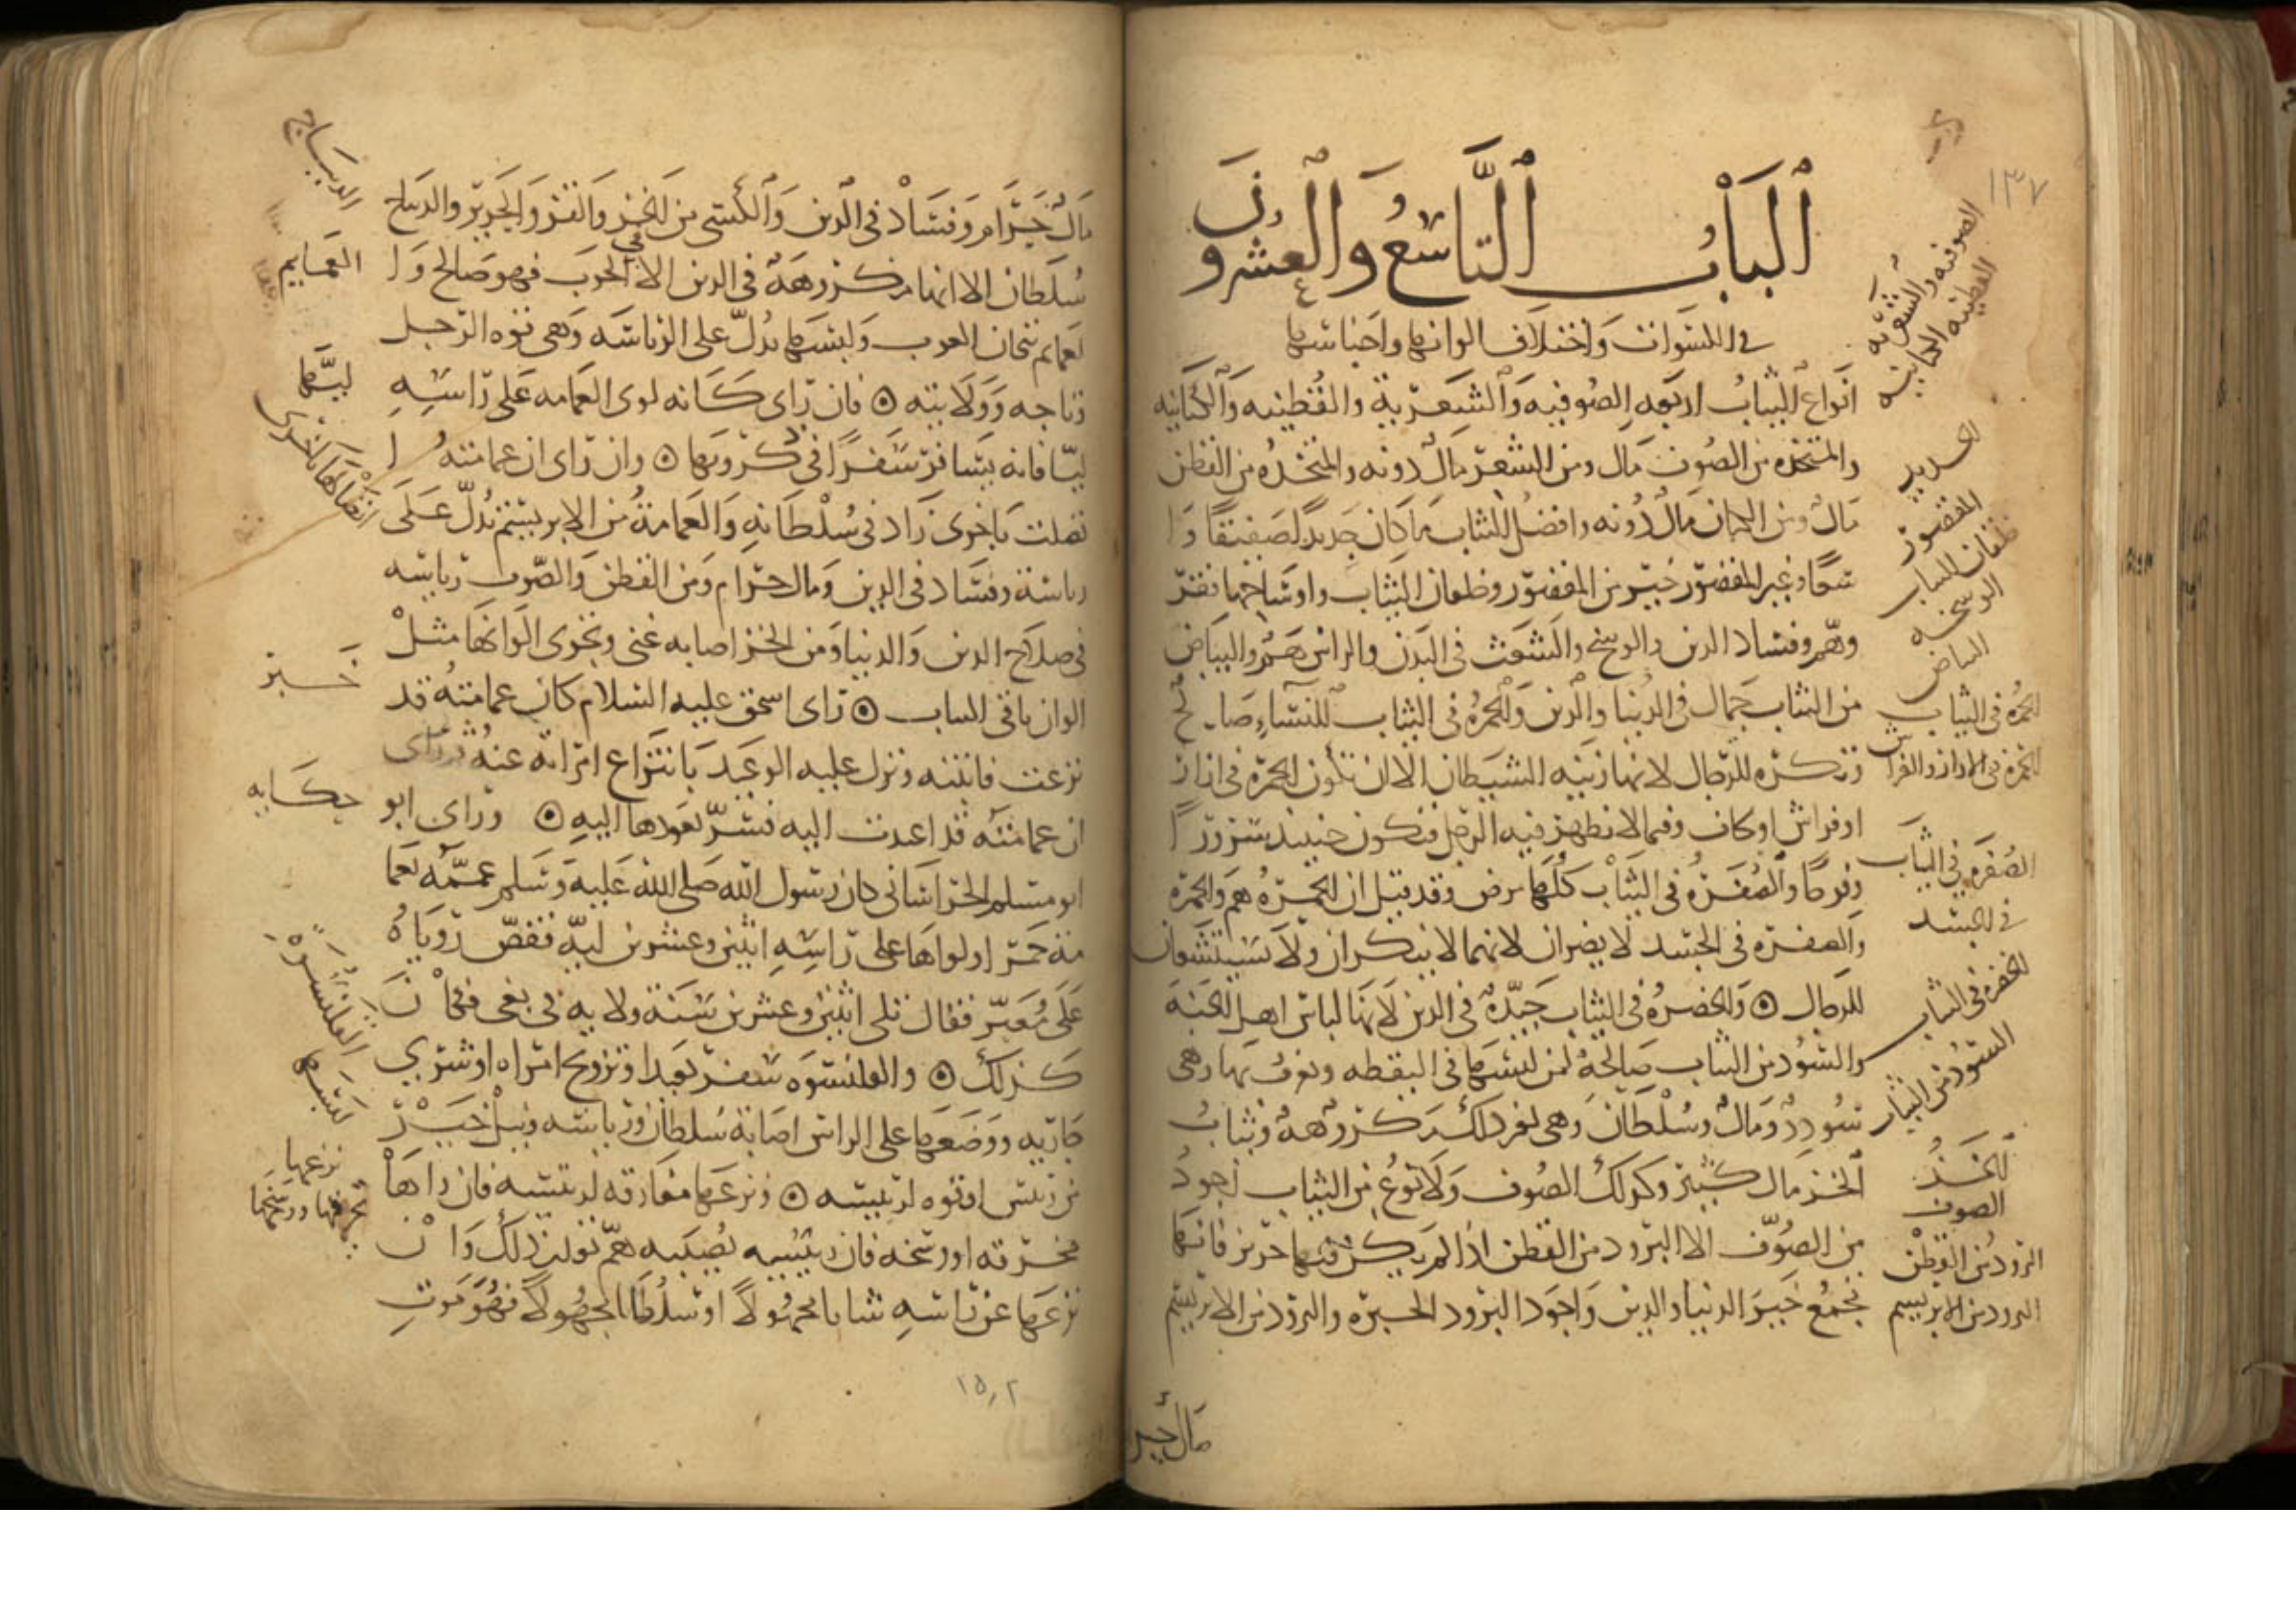 ١٣٧
ٱلبَابُ ٱلتَّاسِعُ وَٱلعِشرُونَ
في الكسوات واختلاف الوانها واجناسها
انواع الثياب اربعه الصوفيه والشعرية والقطنيه والكتانيه
والمتخذه من الصوف مال ومن الشعر مال دونه والمتخذه من القطن
مال ومن الكتان مال دونه وافضل الثياب ما كان جديدا صفيقا وا
سعا وغير المقصور خير من المقصور وخلقان الثياب واوساخها فقر
وهم وفساد الدين والوسخ والشعث في البدن والراس هم والبياض
من الثياب جمال في الدنيا والدين والحمره في الثياب للنساء صالح
وتكره للرجال لانها زينه الشيطان الا ان تكون الحمرة في ازار
او فراش او كان وفيما لا يظهر فيه الرجل فيكون حينيذ سرورا
وفرحا والصفره في الثياب كلها مرض وقد قيل ان الحمره هم والحمرة
والصفره في الجسد لا يضران لانهما لا ينكران ولا يستشنعان
للرجال ۞ والخضره في الثياب جيدة في الدين لانها لباس اهل الجنة
والسود من الثياب صالحة لمن لبسها في اليقظه ويعرف بها وهي
سودد ومال وسلطان وهي لغير ذلك مكروهة وثياب
الخز مال كثير وكذلك الصوف ولا نوع من الثياب اجود
من الصوف الا البرود من القطن اذا لم يكن فيها حرير فانها
تجمع خير الدنيا والدين واجود البرود الحبرة والبرود من الابريسم
الصوفيه والشعريه
القطنيه الكتانيه
الجديد
المقصور
خلقان الثياب
الوسخه
البياض
الحمره في الثياب
الحمره في الازار والفراش
الصفره في الثياب
في الجسد
الخضره في الثياب
السود من الثياب
الخز
الصوف
البرود من القطن
البرود من الابريسم
مال حرا
مال حرام وفساد في الدين والكسى من الخز والقز والحرير والديباج
سلطان الا انها مكروهة في الدين الا في الحرب فهو صالح وا
لعمايم تيجان العرب ولبسها يدل على الرياسه وهي قوه الرجل
وتاجه وولايته ۞ فان راى كانه لوى العمامه على راسه
ليا فانه يسافر سفرا في ذكر وبها ۞ وان راى ان عمامته ا
تصلت باخرى زاد في سلطانه والعمامة من الابريسم تدل على
رياسة وفساد في الدين ومال حرام ومن القطن والصوف رياسه
في صلاح الدين والدنيا ومن الخز اصابه غنى وتجرى الوانها مثل
الوان باقي الثياب ۞ راى اسحق عليه السلام كان عمامته قد
نزعت فانتبه ونزل عليه الوعيد بانتزاع امراته عنه ثم راى
ان عمامته قد اعيدت اليه فسر بعودها اليه ۞ وراى ابو
ابو مسلم الخراساني كان رسول الله صلى الله عليه وسلم عممه بعما
مة حمرا ولواها على راسه اثنين وعشرين ليه فقص روياه
على معبر فقال تلى اثنين وعشرين سنة ولايه في بغى فكان
كذلك ۞ والقلنسوه سفر بعيد او تزويج امراه او شرى
جاريه ووضعها على الراس اصابة سلطان ورياسه ونيل خير
من رئيس او قوه لرئيسه ۞ ونزعها مفارقه لرئيسه فان راها
مخرقه او وسخه فان رئيسه يصيبه هم بقدر ذلك وان
نزعها عن راسه شابا مجهولا او سلطانا مجهولا فهو موت
الديباج
العمايم
ليها
اتصالها باخرى
خبر
حكايه
القلنسوه
لبسها
نزعها
تخرقها ووسخها